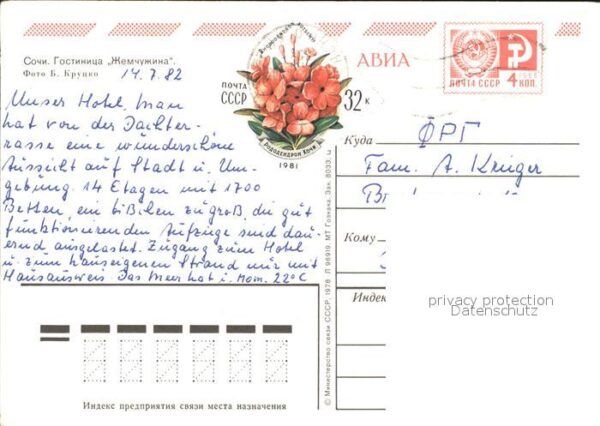 Сочи. Гостиница „Жемчужина".
Фото Б. Крупко
14.7.82
Unser Hotel, man
hat von der Dachter-
rasse eine wunderschöne
Aussicht auf Stadt u. Um-
gebung. 14 Etagen mit 1700
Betten, ein bißchen zu groß, die gut
funktionierenden Aufzüge sind dau-
ernd ausgelastet. Zugang zum Hotel
u. zum hauseigenen Strand nur mit
Hausausweis. Das Meer hat i. Mom. 22°C
АВИА
ПОЧТА
СССР
32 к
РОДОДЕНДРОН КОЧИ
1981
1966
ПОЧТА СССР 4 КОП.
Куда ФРГ
Fam. A. Krüger
Кому
Индекс
privacy protection
Datenschutz
© Министерство связи СССР, 1978 МТ Гознака. Зак. 8033.
Индекс предприятия связи места назначения